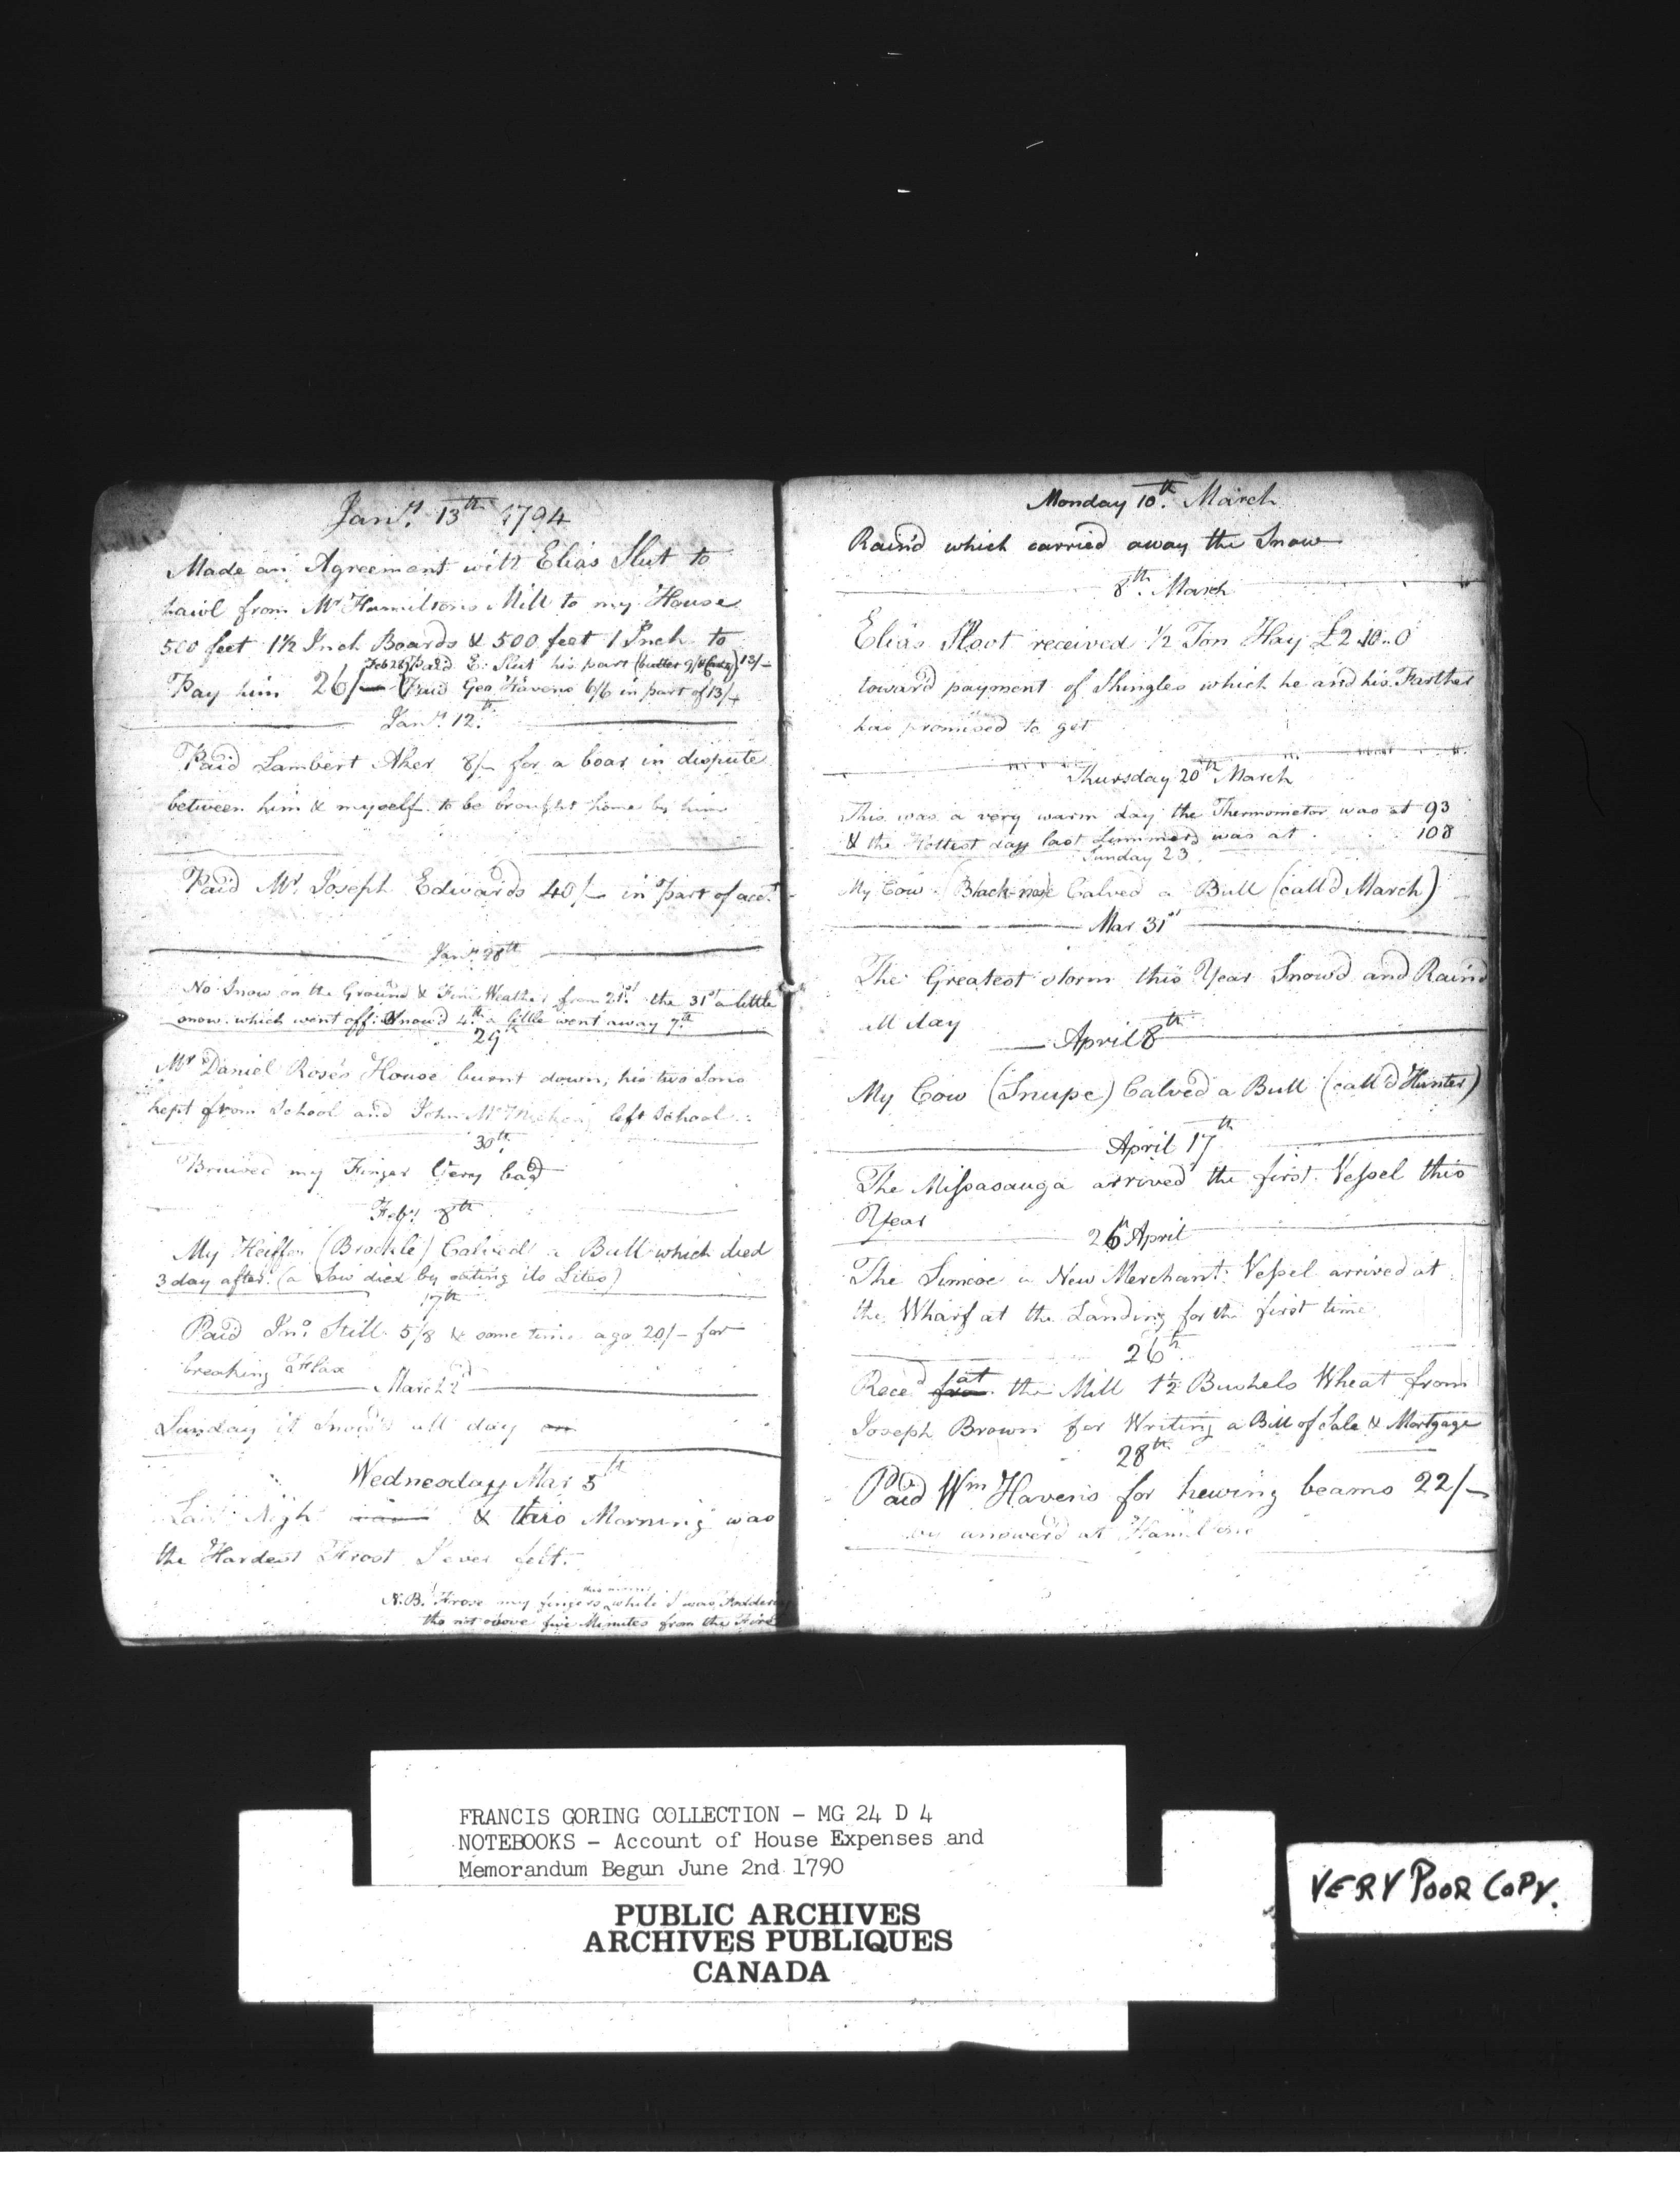 Jany. 13th 1794
Made an Agreement with Elias Slut to
hawl from Mr Hamiltons Mill to my House
500 feet 1½ Inch Boards & 500 feet 1 Inch to
Feb 28 Paid E. Slut his part (butter 9/ & ) 13/-
Pay him 26/— Paid Geo. Havens 6/6 in part of 13/-
Jany. 12th
Paid Lambert Aker 8/- for a boar in dispute
between him & myself to be brought home by him
Paid Mr. Joseph Edwards 40/- in Part of acct.
Jany 28th
No Snow on the Ground & Fine Weather from 21st. the 31st a little
snow which went off: Snow'd 4th a little went away 7th
29
Mr Daniel Rose's House burnt down, his two Sons
kept from School and John left School
30th.
Bruised my Finger Very bad
Feby. 8th
My Heiffer (Brockle) Calved a Bull which died
3 day after. (a Sow died by eating its Litus)
17th
Paid Jno. Still 5/8 & some time ago 20/- for
breaking Flax
March 2d
Sunday it Snow'd all day on
Wednesday Mar 5th
Last Night & this Morning was
the Hardest Frost I ever felt.
N.B. Froze my fingers while I was Foddering
tho not above five Minutes from the Fire
Monday 10th. March
Rain'd which carried away the Snow
8th. March
Elias Sloot received ½ Ton Hay £2.10..0
toward payment of Shingles which he and his Farther
has promised to get
Thursday 20th March
This was a very warm day the Thermometor was at 93
& the Hottest day last Summer was at 108
Sunday 23.
My Cow (Black-nose Calved a Bull (call'd March)
Mar 31st
The Greatest storm this Year Snow'd and Rain'd
all day
April 8th
My Cow (Snupe) Calved a Bull (call'd Hunter)
April 17th
The Missasauga arrived the first Vessel this
Year
26 April
The Simcoe a New Merchant Vessel arrived at
the Wharf at the Landing for the first time
26th.
Reced at the Mill 1½ Bushels Wheat from
Joseph Brown for Writing a Bill of Sale & Mortgage
28th
Paid Wm Havens for hewing beams 22/-
by answer'd at Hamiltons
FRANCIS GORING COLLECTION - MG 24 D 4
NOTEBOOKS - Account of House Expenses and
Memorandum Begun June 2nd 1790
PUBLIC ARCHIVES
ARCHIVES PUBLIQUES
CANADA
VERY POOR COPY.